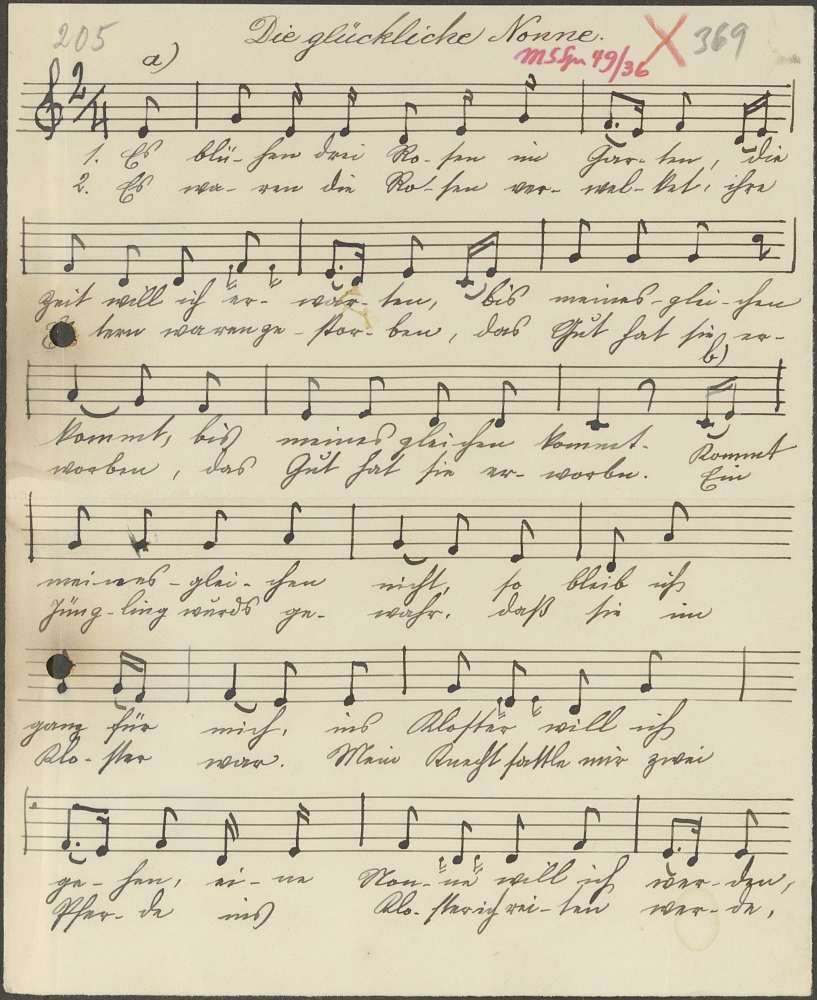 205
Die glückliche Nonne.
369
MSSgn 49/36
a)
2/4
1. Es blü-hen drei Ro-sen im Gar-ten, die
2. Es wa-ren die Ro-sen ver-wel-ket, ihre
Zeit will ich er-war-ten, bis meines-glei-chen
tern waren ge-stor-ben, das Gut hat sie er-
b)
kommt, bis meines gleichen kommt. Kommt
worben, das Gut hat sie er-worbn. Ein
mei-nes-glei-chen nicht, so bleib ich
Jüng-ling wurds ge-wahr, daß sie im
ganz für mich, ins Kloster will ich
Klo-ster war. Mein Knecht sattle mir zwei
ge-hen, ei-ne Non-ne will ich wer-den,
Pfer-de ins Klo-ster ich rei-ten wer-de,